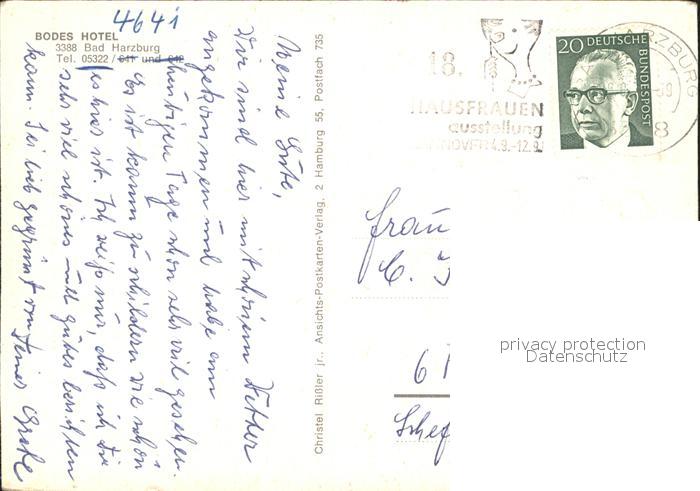 4641
BODES HOTEL
3388 Bad Harzburg
Tel. 05322 / 641 und 642
Meine Gute,
Wir sind hier mit schönem Wetter
angekommen und habe am
heutigen Tage schon sehr viel gesehen.
Es ist kaum zu schildern wie schön
es hier ist. Ich weiß nur, daß ich Dir
sehr viel schönes und gutes berichten
kann. Sei lieb gegrüßt von Deiner Grete
Christel Rißler jr., Ansichts-Postkarten-Verlag, 2 Hamburg 55, Postfach 735
18.
HAUSFRAUEN
ausstellung
HANNOVER 4.9.-12.9.
20 DEUTSCHE
BUNDESPOST
HARZBURG
8
Frau
C.
6
Schef
privacy protection
Datenschutz